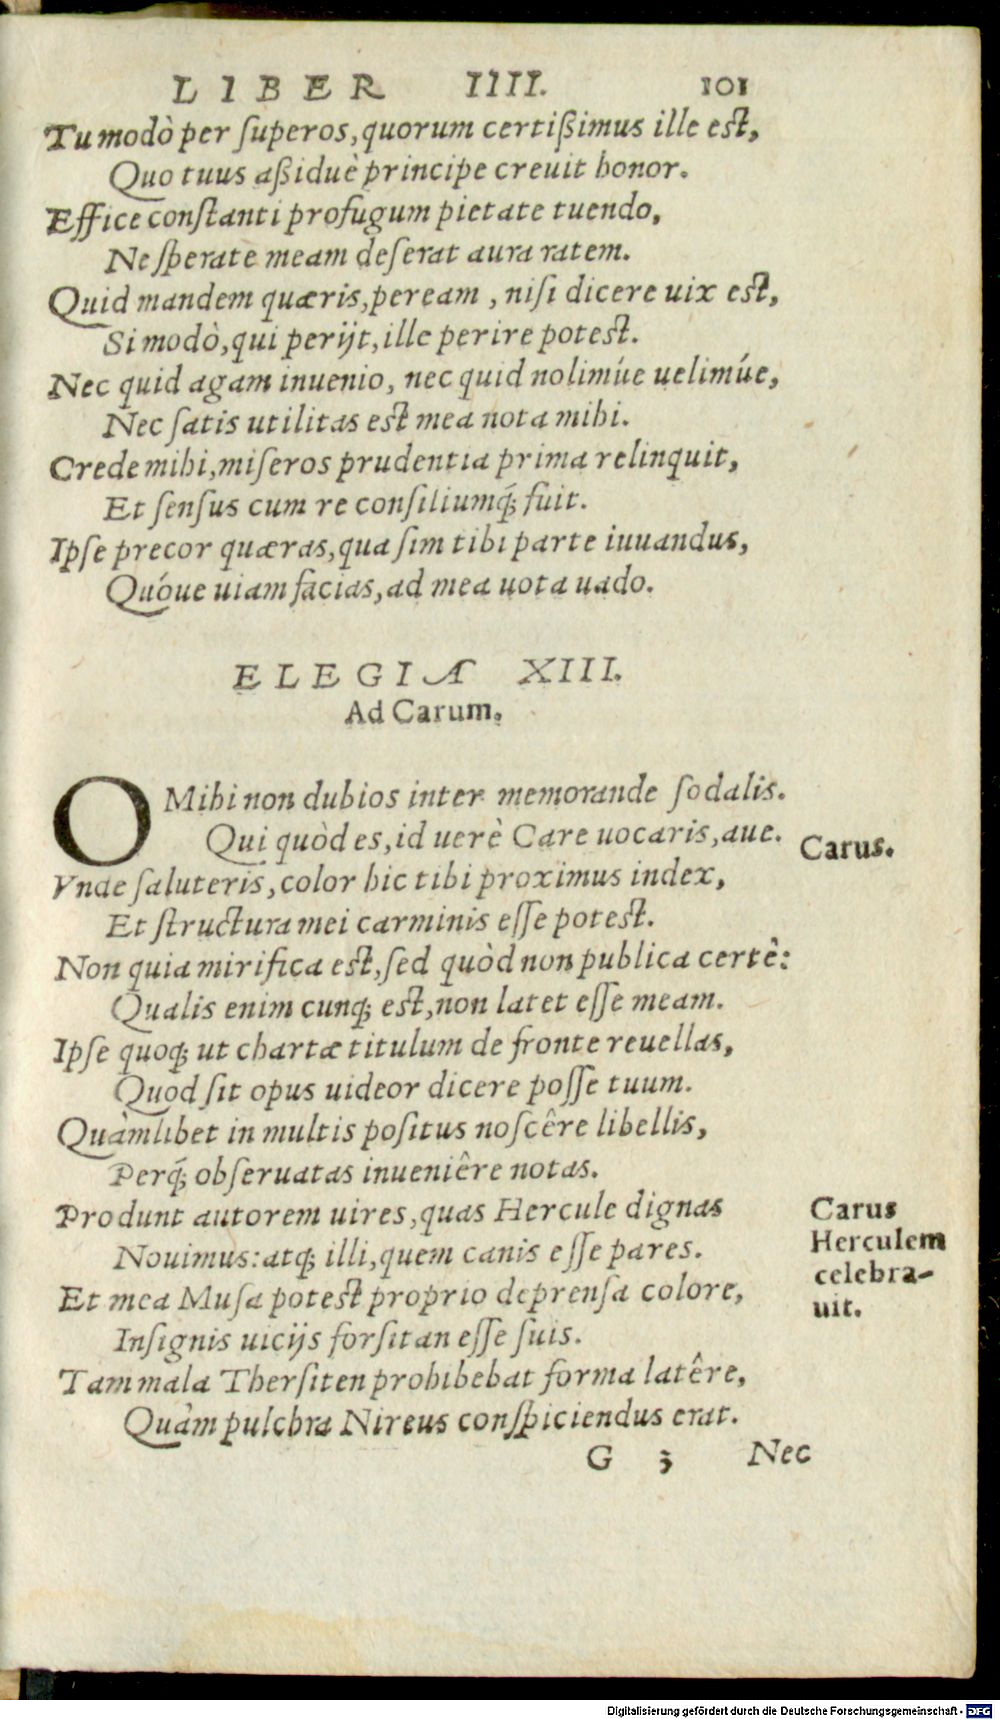 LIBER IIII. 101
Tu modò per ſuperos, quorum certißimus ille est,
Quo tuus aßiduè principe creuit honor.
Effice conſtanti profugum pietate tuendo,
Ne ſperate meam deſerat aura ratem.
Quid mandem quæris, peream, niſi dicere uix est,
Si modò, qui perijt, ille perire potest.
Nec quid agam inuenio, nec quid nolimúe uelimúe,
Nec ſatis utilitas est mea nota mihi.
Crede mihi, miſeros prudentia prima relinquit,
Et ſenſus cum re conſiliumq́; fuit.
Ipſe precor quæras, qua ſim tibi parte iuuandus,
Quóue uiam facias, ad mea uota uado.
ELEGIA XIII.
Ad Carum.
O Mihi non dubios inter memorande ſodalis.
Qui quòd es, id uerè Care uocaris, aue.
Carus.
Vnde ſaluteris, color hic tibi proximus index,
Et ſtructura mei carminis eſſe potest.
Non quia mirifica est, ſed quòd non publica certê:
Qualis enim cunq; est, non latet eſſe meam.
Ipſe quoq; ut chartæ titulum de fronte reuellas,
Quod ſit opus uideor dicere poſſe tuum.
Quàmlibet in multis poſitus noſcêre libellis,
Perq́; obſeruatas inueniêre notas.
Produnt autorem uires, quas Hercule dignas
Nouimus: atq; illi, quem canis eſſe pares.
Carus
Herculem
celebra-
uit.
Et mea Muſa potest proprio deprenſa colore,
Inſignis uicijs forſitan eſſe ſuis.
Tam mala Therſiten prohibebat forma latêre,
Quàm pulchra Nireus conſpiciendus erat.
G 3 Nec
Digitalisierung gefördert durch die Deutsche Forschungsgemeinschaft - DFG